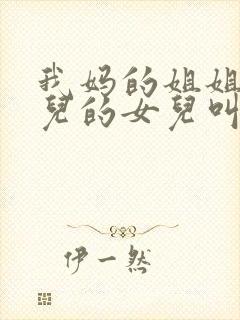 我妈的姐姐
兒的女兒叫
伊一然